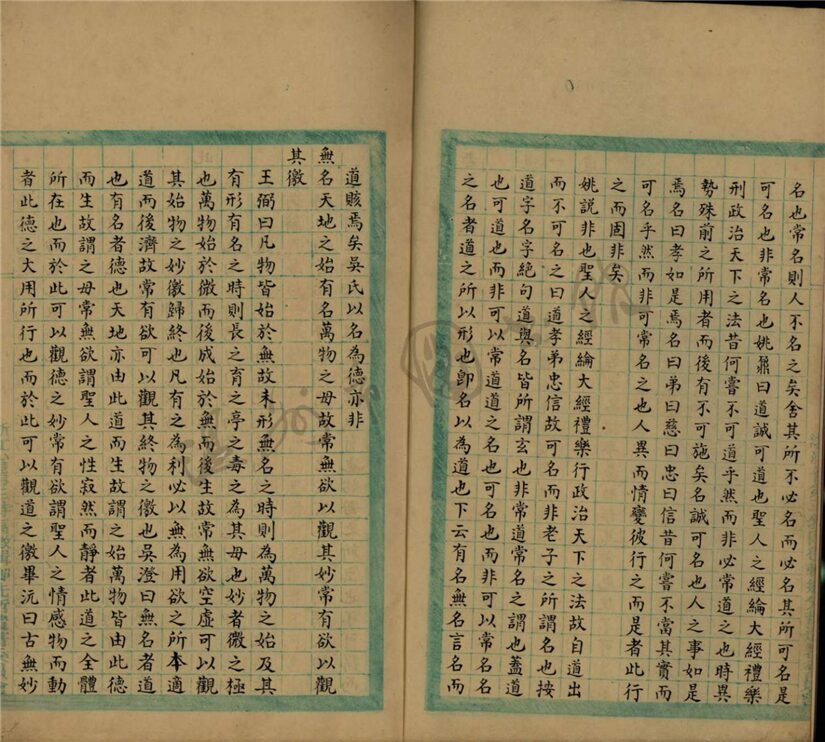 名也常名則人不名之矣舍其所不必名而必名其所可名是
可名也非常名也姚鼐曰道誠可道也聖人之經綸大經禮樂
刑政治天下之法昔何嘗不可道乎然而非必常道之也時異
勢殊前之所用者而後有不可施矣名誠可名也人之事如是
焉名曰孝如是焉名曰弟曰慈曰忠曰信昔何嘗不當其實而
可名乎然而非可常名之也人異而情變彼行之而是者此行
之而固非矣
姚說非也聖人之經綸大經禮樂行政治天下之法故自道出
而不可名之曰道孝弟忠信故可名而非老子之所謂名也按
道字名字絕句道與名皆所謂玄也非常道常名之謂也蓋道
也可道也而非可以常道道之名也可名也而非可以常名名
之名者道之所以形也卽名以為道也下云有名無名言名而
道賅焉矣吳氏以名為德亦非
無名天地之始有名萬物之母故常無欲以觀其妙常有欲以觀
其徼
王弼曰凡物皆始於無故未形無名之時則為萬物之始及其
有形有名之時則長之育之亭之毒之為其母也妙者微之極
也萬物始於微而後成始於無而後生故常無欲空虛可以觀
其始物之妙徼歸終也凡有之為利必以無為用欲之所本適
道而後濟故常有欲可以觀其終物之徼也吳澄曰無名者道
也有名者德也天地亦由此道而生故謂之始萬物皆由此德
而生故謂之母常無欲謂聖人之性寂然而靜者此道之全體
所在也而於此可以觀德之妙常有欲謂聖人之情感物而動
者此德之大用所行也而於此可以觀道之徼畢沅曰古無妙